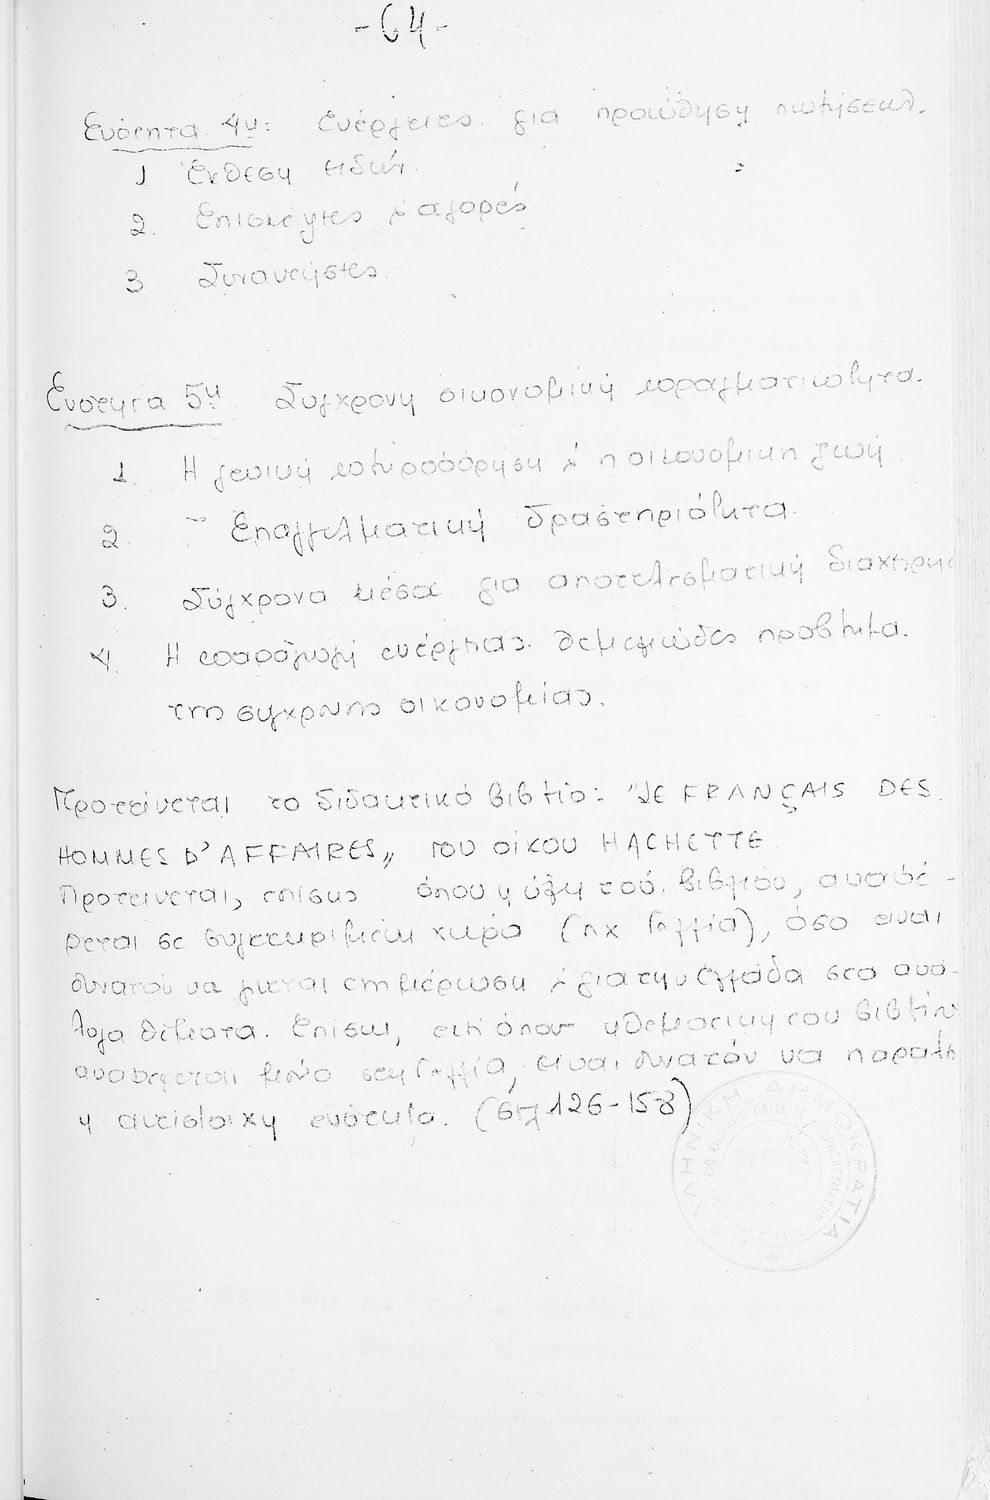 -64-
Ενότητα 4η: Ενέργειες για προώθηση πωλήσεων.
1 Έκθεση ειδών.
2. Επισκέψεις & αγορές
3 Συναντήσεις.
Ενότητα 5η Σύγχρονη οικονομική πραγματικότητα.
1. Η γενική πληροφόρηση & η οικονομική ζωή.
2. " Επαγγελματική δραστηριότητα.
3. Σύγχρονα μέσα για αποτελεσματική διαχείρηση
4. Η παραγωγή ενέργειας. Θεμελιώδες πρόβλημα.
της σύγχρονης οικονομίας.
Προτείνεται το διδακτικό βιβλίο: "LE FRANÇAIS DES
HOMMES D'AFFAIRES„ του οίκου HACHETTE.
Προτείνεται, επίσης όπου η ύλη του βιβλίου, αναφέ-
ρεται σε συγκεκριμένη χώρα (πχ Γαλλία), όσο είναι
δυνατόν να γίνεται ενημέρωση & για την Ελλάδα στα ανά-
λογα θέματα. Επίσης, εκεί όπου η θεματική του βιβλίου
αναφέρεται μόνο στη Γαλλία, είναι δυνατόν να παραλη
η αντίστοιχη ενότητα. (σελ 126-158)
ΕΛΛΗΝΙΚΗ ΔΗΜΟΚΡΑΤΙΑ
Κ.Ε.Μ.Ε.